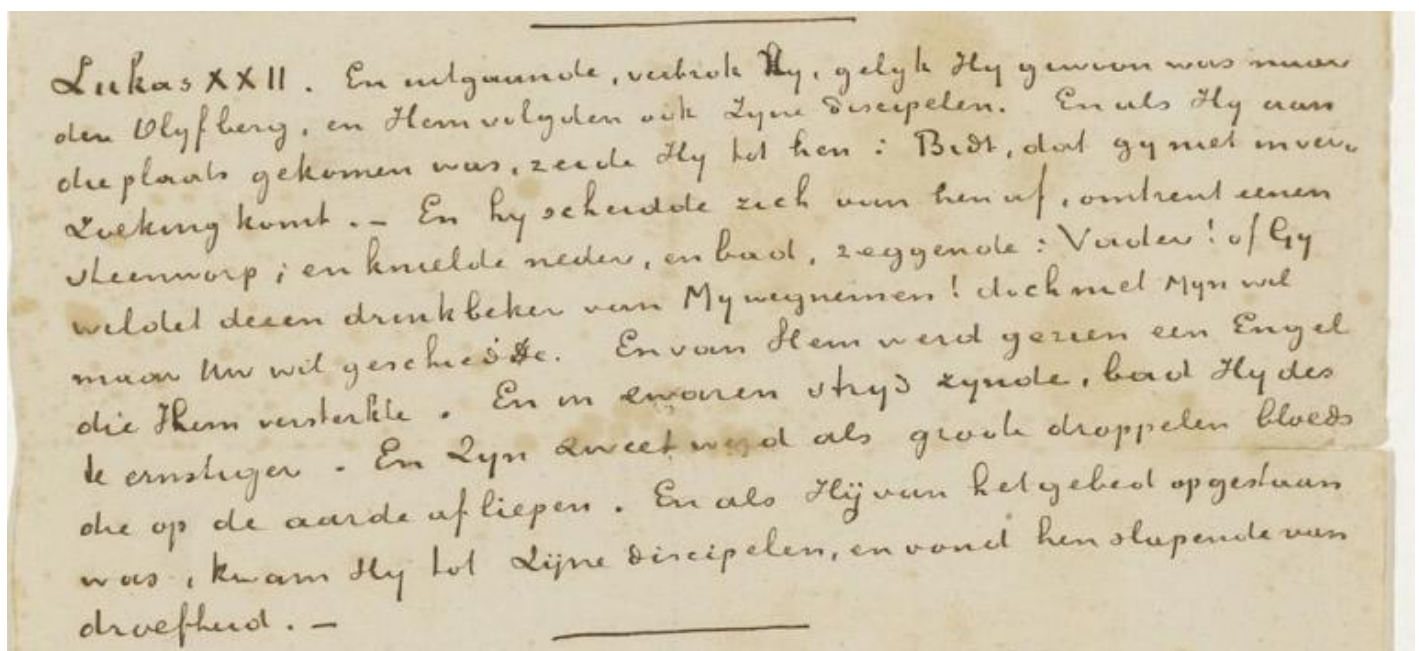 Lukas XXII. En uitgaande, vertrok Hy, gelyk Hy gewoon was naar
den Olyfberg, en Hem volgden ook Zyne discipelen. En als Hy aan
die plaats gekomen was, zeide Hy tot hen: Bidt, dat gy niet in ver„
zoeking komt. – En hy scheidde zich van hen af, omtrent eenen
steenworp; en knielde neder, en bad, zeggende: Vader! of Gy
wildet dezen drinkbeker van My wegnemen! doch niet Myn wil
maar Uw wil geschiedde. En van Hem werd gezien een Engel
die Hem versterkte. En in zwaren stryd zynde, bad Hy des
te ernstiger. En Zyn zweet werd als groote droppelen bloeds
die op de aarde afliepen. En als Hij van het gebed opgestaan
was, kwam Hy tot Zijne discipelen, en vond hen slapende van
droefheid. –